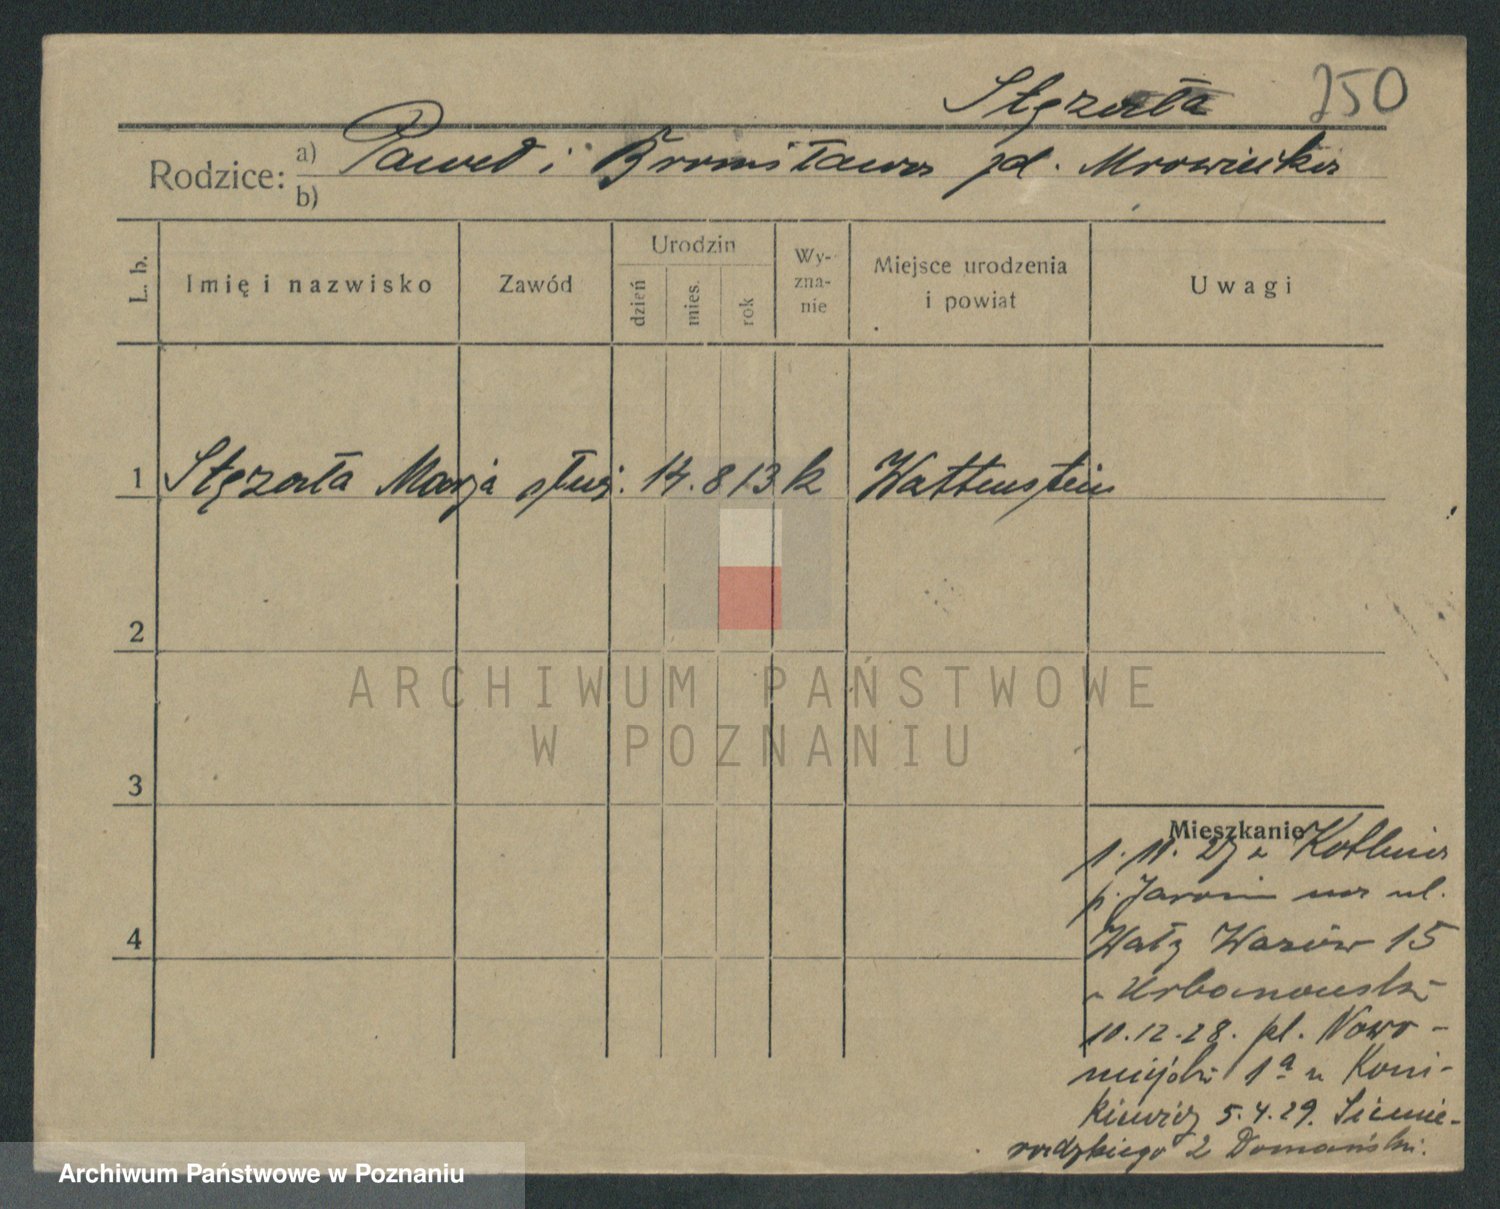 Stęzała 250
Rodzice: a) Paweł i Bronisława zd. Mrowicka
b)
L. b. Imię i nazwisko Zawód Urodzin dzień mies. rok Wy-zna-nie Miejsce urodzenia i powiat Uwagi
1 Stęzała Marja służ. 14. 8 13 k Wattenstein
2
ARCHIWUM PAŃSTWOWE
W POZNANIU
3
Mieszkanie
1. 11. 27 z Kotlina
p. Jarocin na ul.
4 Wały Wazów 15
u Urbanowski
10.12.28. pl. Nowo-
miejski 1a u Koni-
kiewicz 5.4.29. Siemie-
radzkiego 2 Domański.
Archiwum Państwowe w Poznaniu